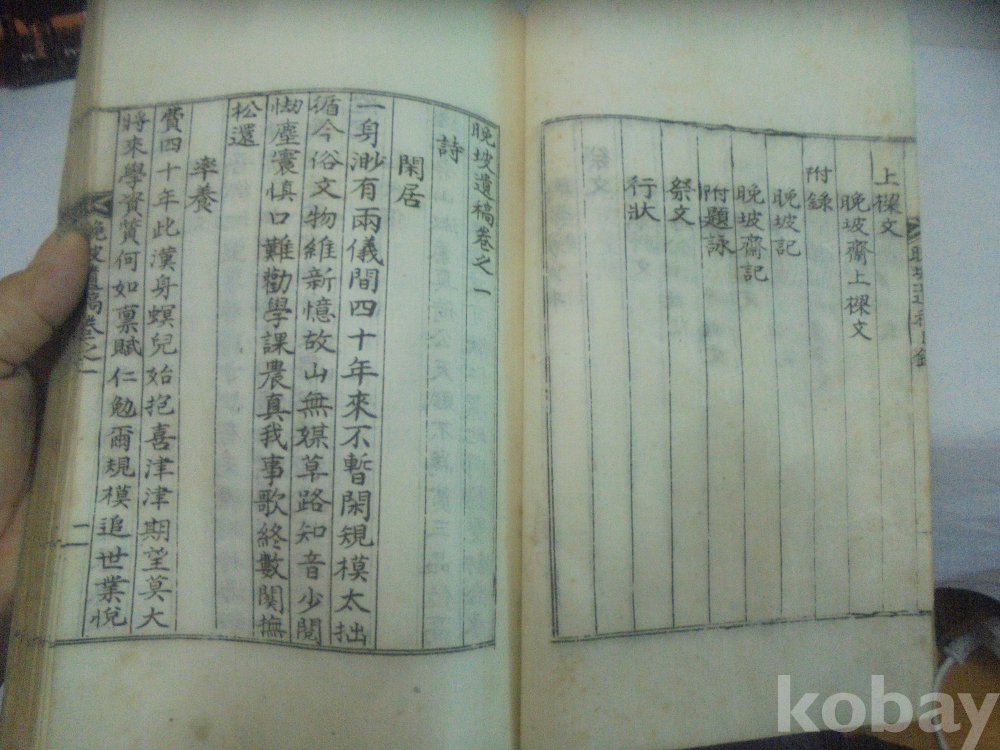 上樑文
晩坡齋上樑文
附錄
晩坡記
晩坡齋記
附題詠
祭文
行狀
晩坡遺稿卷之一
詩
閑居
一身渺有兩儀間四十年來不暫閑規模太拙
循今俗文物維新憶故山無媒草路知音少閱
刼塵寰愼口難勸學課農眞我事歌終數闋撫
松還
率養
費四十年此漢身螟兒始抱喜津津期望莫大
將來學資質何如禀賦仁勉爾規模追世業悅
晩坡遺稿卷之一
一
kobay